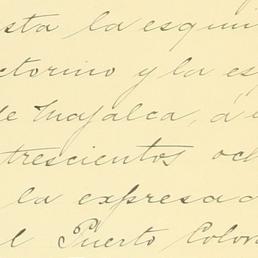 sta la esqui
ctorino y la es
de Majalca, á
trescientos och
la expresad
el Puerto Colom